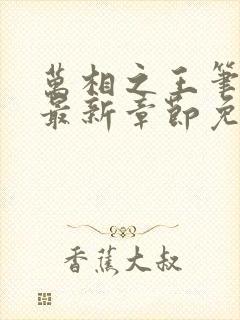 萬相之王筆
最新章節免
香蕉大叔